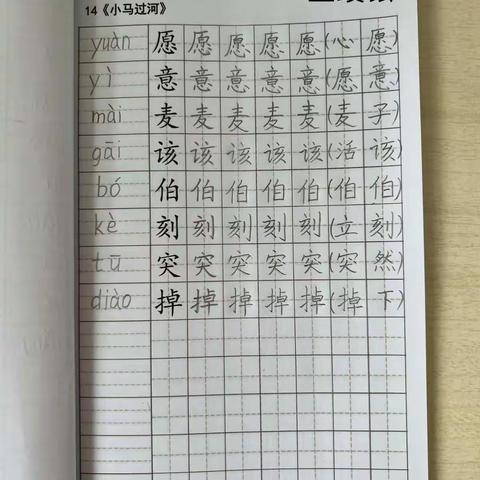 14《小马过河》
yuàn 愿 愿 愿 愿 愿 (心 愿)
yì 意 意 意 意 意 (愿 意)
mài 麦 麦 麦 麦 麦 (麦 子)
gāi 该 该 该 该 该 (活 该)
bó 伯 伯 伯 伯 伯 (伯 伯)
kè 刻 刻 刻 刻 刻 (立 刻)
tū 突 突 突 突 突 (突 然)
diào 掉 掉 掉 掉 掉 (掉 下)